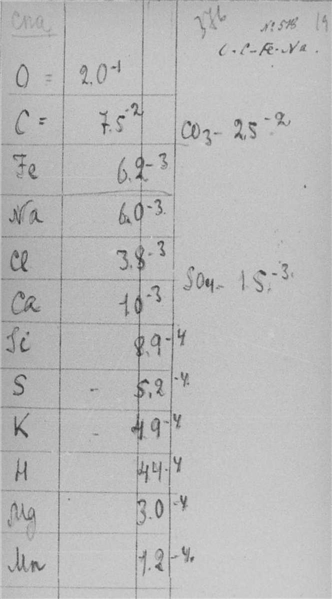 сиа 378 № 518 19
C-C-Fe-Na.
O = 2.0⁻¹
C = 7.5⁻² CO₃ - 2.5⁻²
Fe 6.2⁻³
Na 6.0⁻³
Cl 3.8⁻³
Ca 1.0⁻³ SO₄ - 1.5⁻³.
Si 8.9⁻⁴
S - 5.2⁻⁴
K - 4.9⁻⁴
H 4.4⁻⁴
Mg 3.0⁻⁴
Mn 1.2⁻⁴